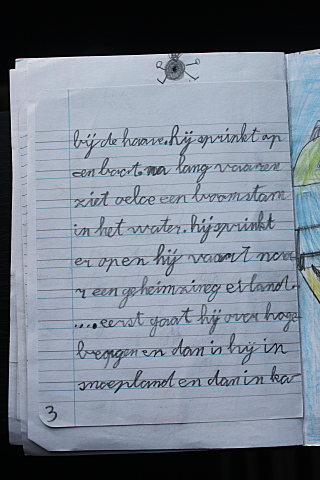 bij de haave. hij sprinkt op
een boot. na lang vaaren
ziet oeloe een boomstam
in het water. hij sprinkt
er open hij vaart naa
r een geheimzineg eiland.
....eerst gaat hij over hoge
bergen en dan is hij in
snoepland en dan in ka
3